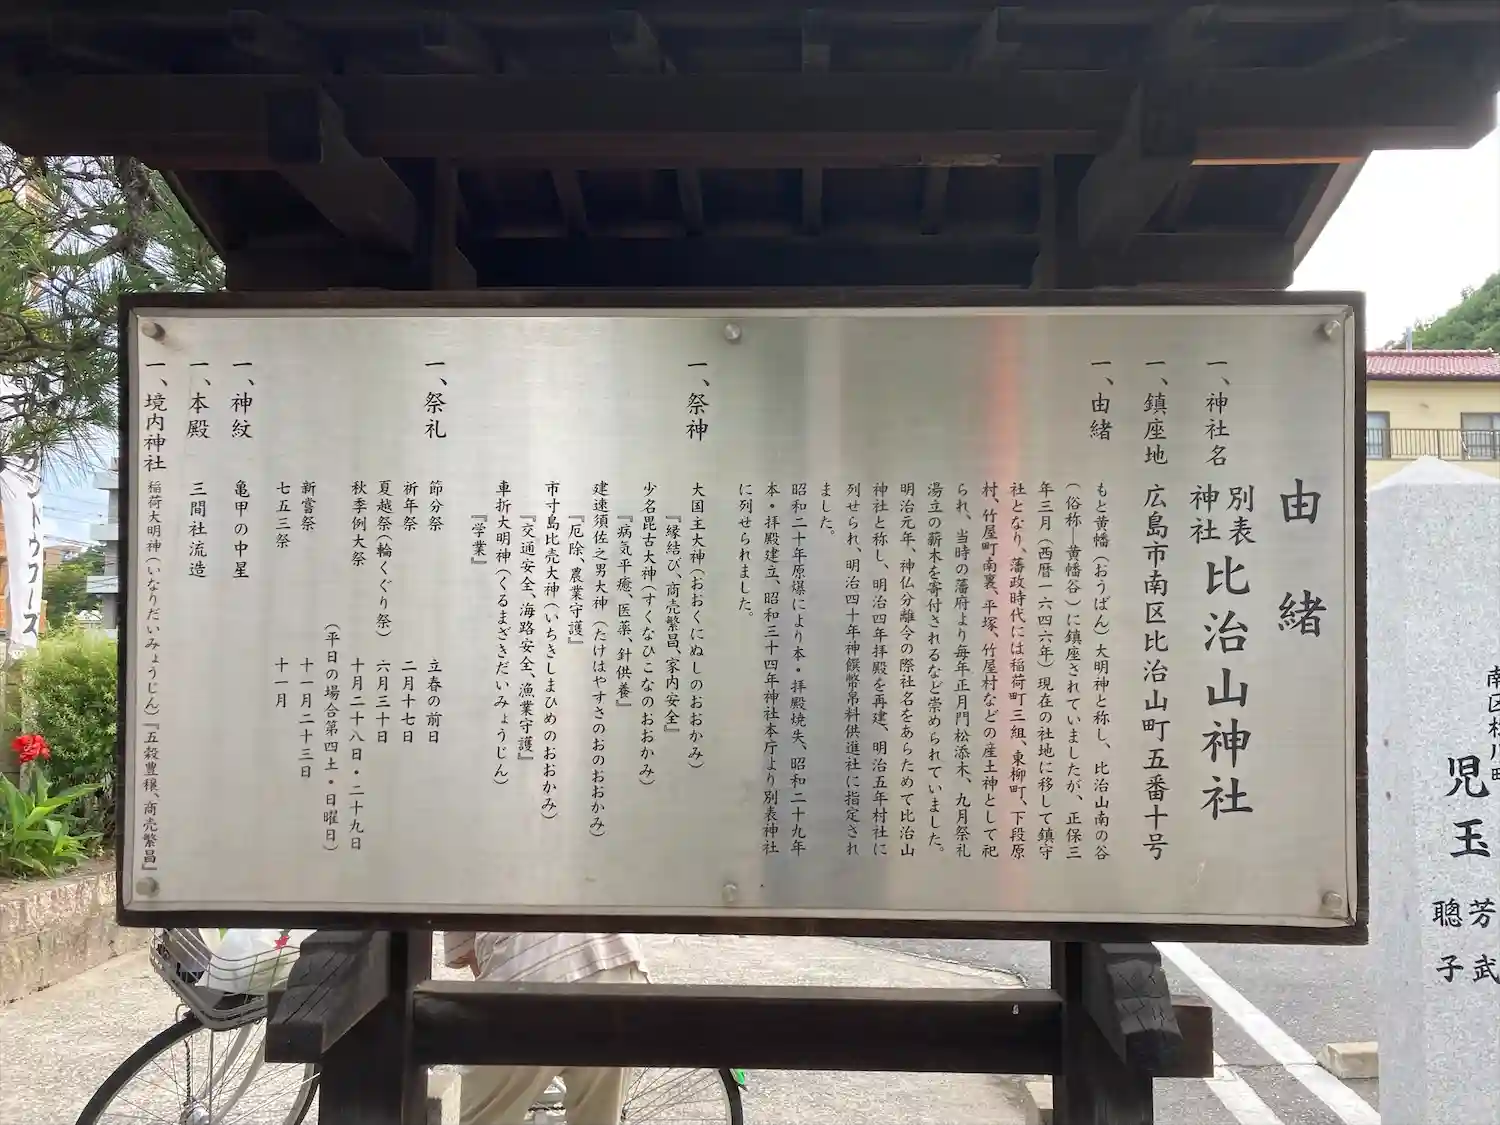 由緒
一、神社名 別表神社 比治山神社
一、鎮座地 広島市南区比治山町五番十号
一、由緒 もと黄幡(おうばん)大明神と称し、比治山南の谷
(俗称―黄幡谷)に鎮座されていましたが、正保三
年三月(西暦一六四六年)現在の社地に移して鎮守
社となり、藩政時代には稲荷町三組、東柳町、下段原
村、竹屋町南裏、平塚、竹屋村などの産土神として祀
られ、当時の藩府より毎年正月門松添木、九月祭礼
湯立の薪木を寄付されるなど崇められていました。
明治元年、神仏分離令の際社名をあらためて比治山
神社と称し、明治四年拝殿を再建、明治五年村社に
列せられ、明治四十年神饌幣帛料供進社に指定され
ました。
昭和二十年原爆により本・拝殿焼失、昭和二十九年
本・拝殿建立、昭和三十四年神社本庁より別表神社
に列せられました。
一、祭神 大国主大神(おおくにぬしのおおかみ)
『縁結び、商売繁昌、家内安全』
少名毘古大神(すくなひこなのおおかみ)
『病気平癒、医薬、針供養』
建速須佐之男大神(たけはやすさのおのおおかみ)
『厄除、農業守護』
市寸島比売大神(いちきしまひめのおおかみ)
『交通安全、海路安全、漁業守護』
車折大明神(くるまざきだいみょうじん)
『学業』
一、祭礼 節分祭 立春の前日
祈年祭 二月十七日
夏越祭(輪くぐり祭) 六月三十日
秋季例大祭 十月二十八日・二十九日
(平日の場合第四土・日曜日)
新嘗祭 十一月二十三日
七五三祭 十一月
一、神紋 亀甲の中星
一、本殿 三間社流造
一、境内神社 稲荷大明神(いなりだいみょうじん)『五穀豊穣、商売繁昌』
児玉
芳武
聰子